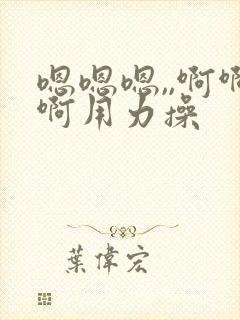 嗯嗯嗯,,啊啊
啊用力操
葉偉宏